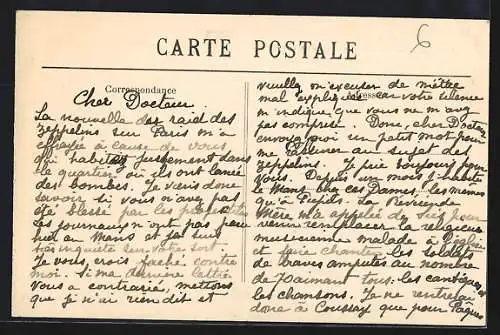 6
CARTE POSTALE
Correspondance
Adresse
Cher Docteur.
La nouvelle des raid des
zeppelins sur Paris m'a
effrayée à cause de vous
qui habitez justement dans
le quartier où ils ont lancé
des bombes. Je viens donc
savoir si vous n'avez pas
été blessé par les
les journaux n'ont pas paru
au Mans et je suis
inquiète sur votre sort.
Je vous crois fâché contre
moi. Si ma dernière lettre
vous a contrarié, mettons
que je n'ai rien dit et
veuillez m'excuser de m'être
mal expliquée car votre silence
m'indique que vous ne m'avez
pas comprise. Donc, cher Docteur
envoyez-moi un petit mot pour
me rassurer au sujet des
zeppelins. Je prie toujours pour
vous. Depuis un mois j'habite
le Mans chez ces Dames, les mêmes
qu'à La Révérende
Mère m'a appelée de pour
venir remplacer la religieuse
musicienne malade à l'église
et faire chanter les soldats
de braves amputés au nombre
de tous les cantiques et
les chansons. Je ne rentrerai
donc à Coussay que pour Pâques